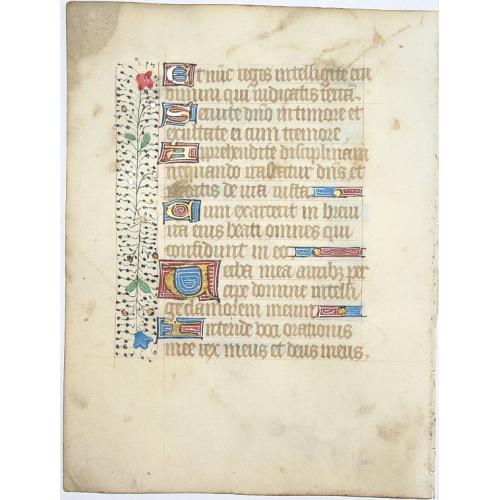 Et nūc reges intelligite eru
dimini qui iudicatis terrā.
Seruite dnō in timore et
exultate ei cum tremore
Apprehendite disciplinam
nequando irascatur dn̄s et
pereatis de uia iusta
Cum exarserit in breui
ira eius beati omnes qui
confidunt in eo
Verba mea auribꝫ per
cipe domine intelli
ge clamorem meum
Intende voci orationis
mee rex meus et deus meus.